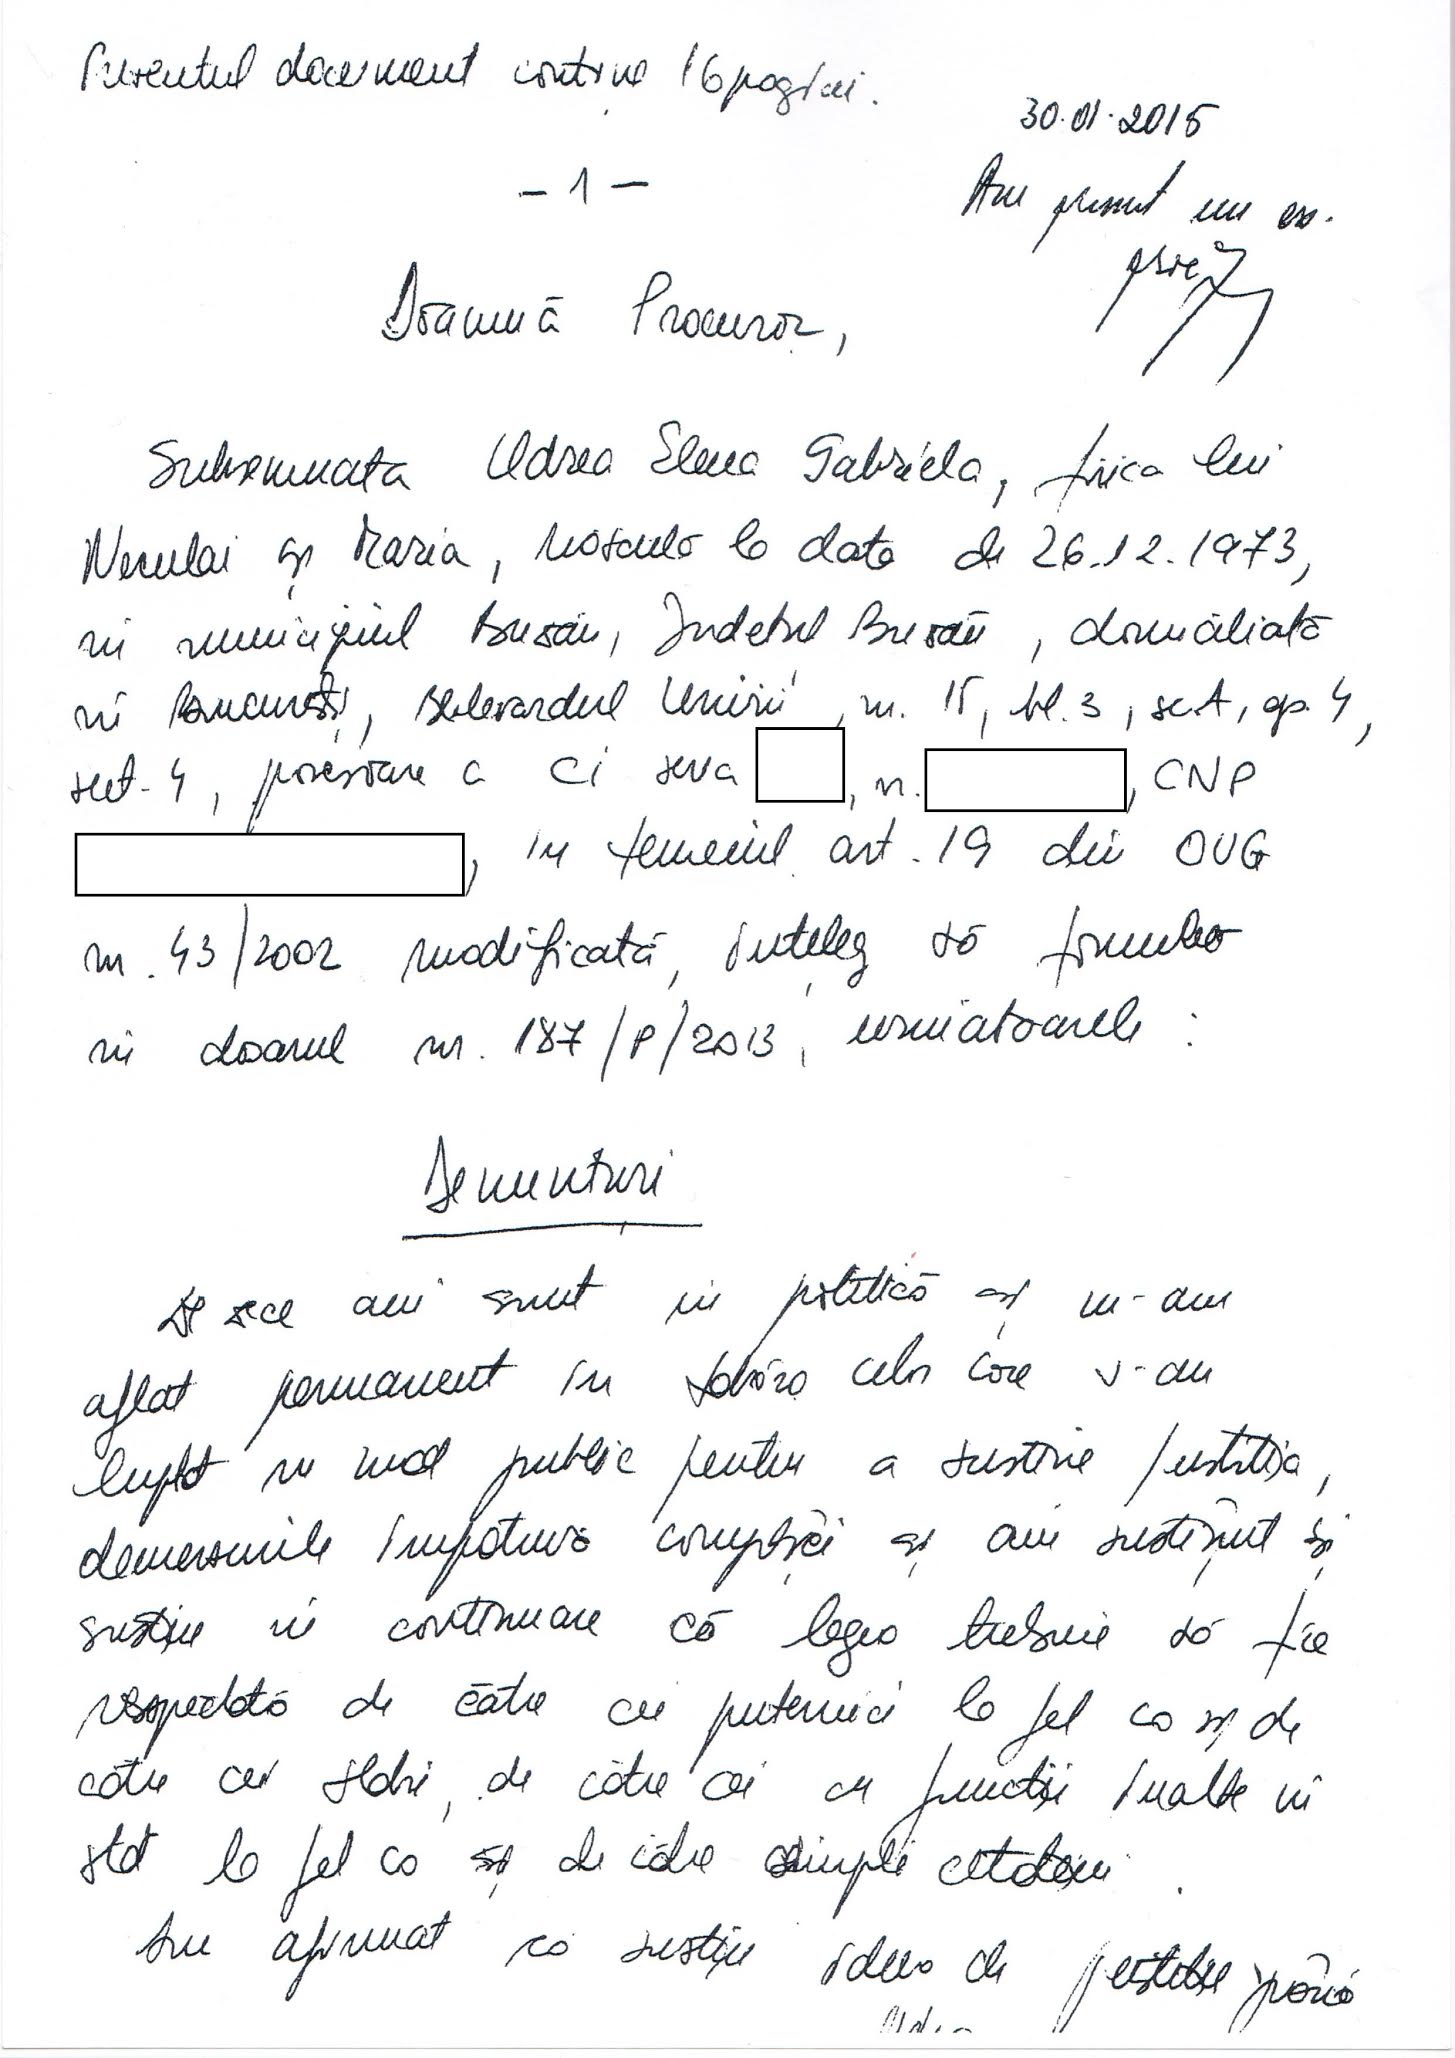 Prezentul document conține 16 pagini.
30.01.2015
- 1 -
Am primit un ex.
Doamnă Procuror,
Subsemnata Udrea Elena Gabriela, fiica lui
Neculai și Maria, născută la data de 26.12.1973,
în municipiul Buzău, Județul Buzău, domiciliată
în București, Bulevardul Unirii, nr. 15, bl. 3, sc. A, ap. 4,
sect. 4, posesoare a CI seria , nr. , CNP
, în temeiul art. 19 din OUG
nr. 43/2002 modificată, înțeleg să formulez
în dosarul nr. 187/P/2013, următoarele :
Denunțuri
De zece ani sunt în politică și m-am
aflat permanent în tabăra celor care s-au
luptat în mod public pentru a susține Justiția,
demersurile împotriva corupției și am susținut și
susțin în continuare că legea trebuie să fie
respectată de către cei puternici la fel ca și de
către cei slabi, de către cei cu funcții înalte în
stat la fel ca și de către simpli cetățeni.
Am afirmat că susțin ideea de justiție până